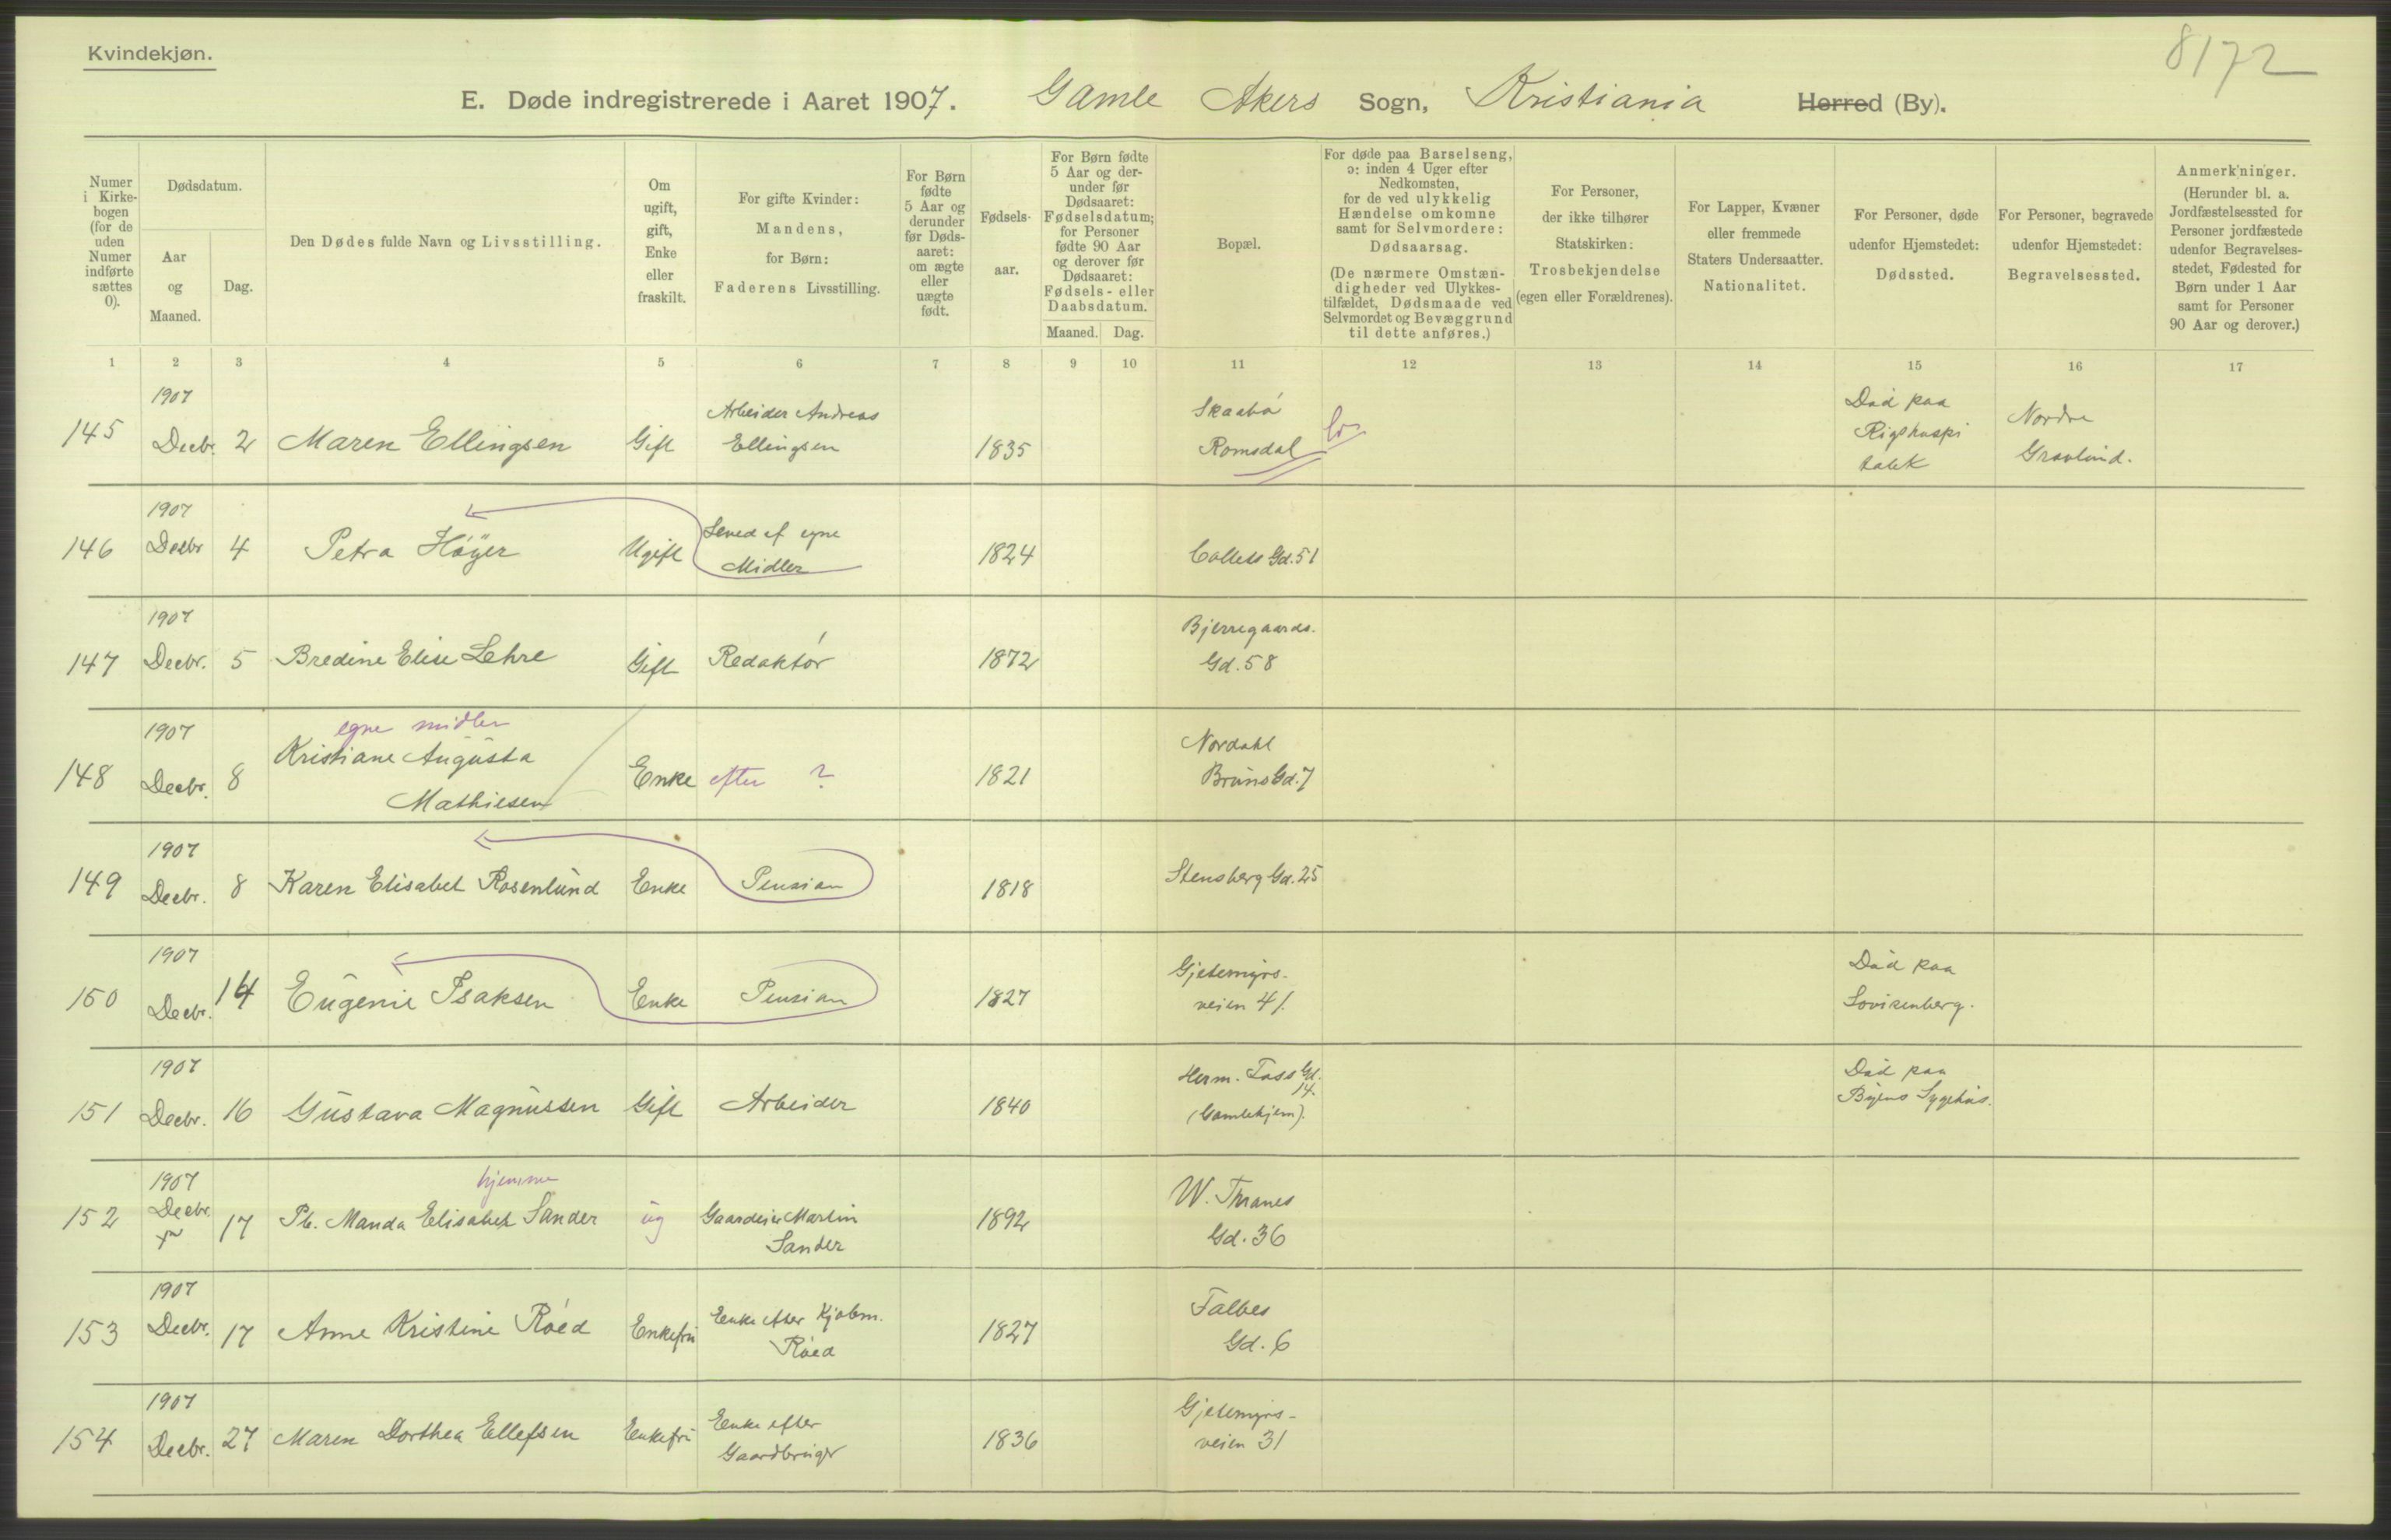 Kvindekjøn.
8172
E. Døde indregistrerede i Aaret 1907. Gamle Akers Sogn, Kristiania Herred (By).
Numer i Kirkebogen (for de uden Numer indførte sættes 0).
Dødsdatum.
Aar og Maaned.
Dag.
Den Dødes fulde Navn og Livsstilling.
Om ugift, gift, Enke eller fraskilt.
For gifte Kvinder: Mandens, for Børn: Faderens Livsstilling.
For Børn fødte 5 Aar og derunder før Dødsaaret: om ægte eller uægte født.
Fødselsaar.
For Børn fødte 5 Aar og derunder før Dødsaaret: Fødselsdatum; for Personer fødte 90 Aar og derover før Dødsaaret: Fødsels- eller Daabsdatum.
Maaned. Dag.
Bopæl.
For døde paa Barselseng, ɔ: inden 4 Uger efter Nedkomsten, for de ved ulykkelig Hændelse omkomne samt for Selvmordere: Dødsaarsag.
(De nærmere Omstændigheder ved Ulykkestilfældet, Dødsmaade ved Selvmordet og Bevæggrund til dette anføres.)
For Personer, der ikke tilhører Statskirken: Trosbekjendelse (egen eller Forældrenes).
For Lapper, Kvæner eller fremmede Staters Undersaatter. Nationalitet.
For Personer, døde udenfor Hjemstedet: Dødssted.
For Personer, begravede udenfor Hjemstedet: Begravelsessted.
Anmerkninger. (Herunder bl. a. Jordfæstelsessted for Personer jordfæstede udenfor Begravelsesstedet, Fødested for Børn under 1 Aar samt for Personer 90 Aar og derover.)
1 2 3 4 5 6 7 8 9 10 11 12 13 14 15 16 17
145 1907 Decbr. 2 Maren Ellingsen Gift Arbeider Andreas Ellingsen 1835 Romsdal Død paa Rigshospitalet Nordre Gravlund.
146 1907 Decbr 4 Petra Høyer Ugift Leved af egne Midler 1824 Colletts Gd. 51
147 1907 Decbr. 5 Bredine Elise Lehre Gift Redaktør 1872 Bjerregaards. Gd. 58
148 1907 Decbr. 8 egne midler Kristiane Augusta Mathiesen Enke efter ? 1821 Nordahl Bruns Gd. 7
149 1907 Decbr. 8 Karen Elisabet Rosenlund Enke Pension 1818 Stensberg Gd. 25
150 1907 Decbr. 14 Eugenie Isaksen Enke Pension 1827 Gjetemyrsveien 41. Død paa Lovisenberg.
151 1907 Decbr. 16 Gustava Magnussen Gift Arbeider 1840 Herm. Foss Gd. 14. (Gamlehjem). Død paa Byens Sygehus.
152 1907 Decbr. 17 hjemme Pb. Manda Elisabet Sander ug Gaardeier Martin Sander 1892 W. Thranes Gd. 36
153 1907 Decbr. 17 Anne Kristine Røed Enkefru Enke efter Kjøbm. Røed 1827 Falbes Gd. 6
154 1907 Decbr. 27 Maren Dorthea Ellefsen Enkefru Enke efter Gaardbruger 1836 Gjetemyrsveien 31